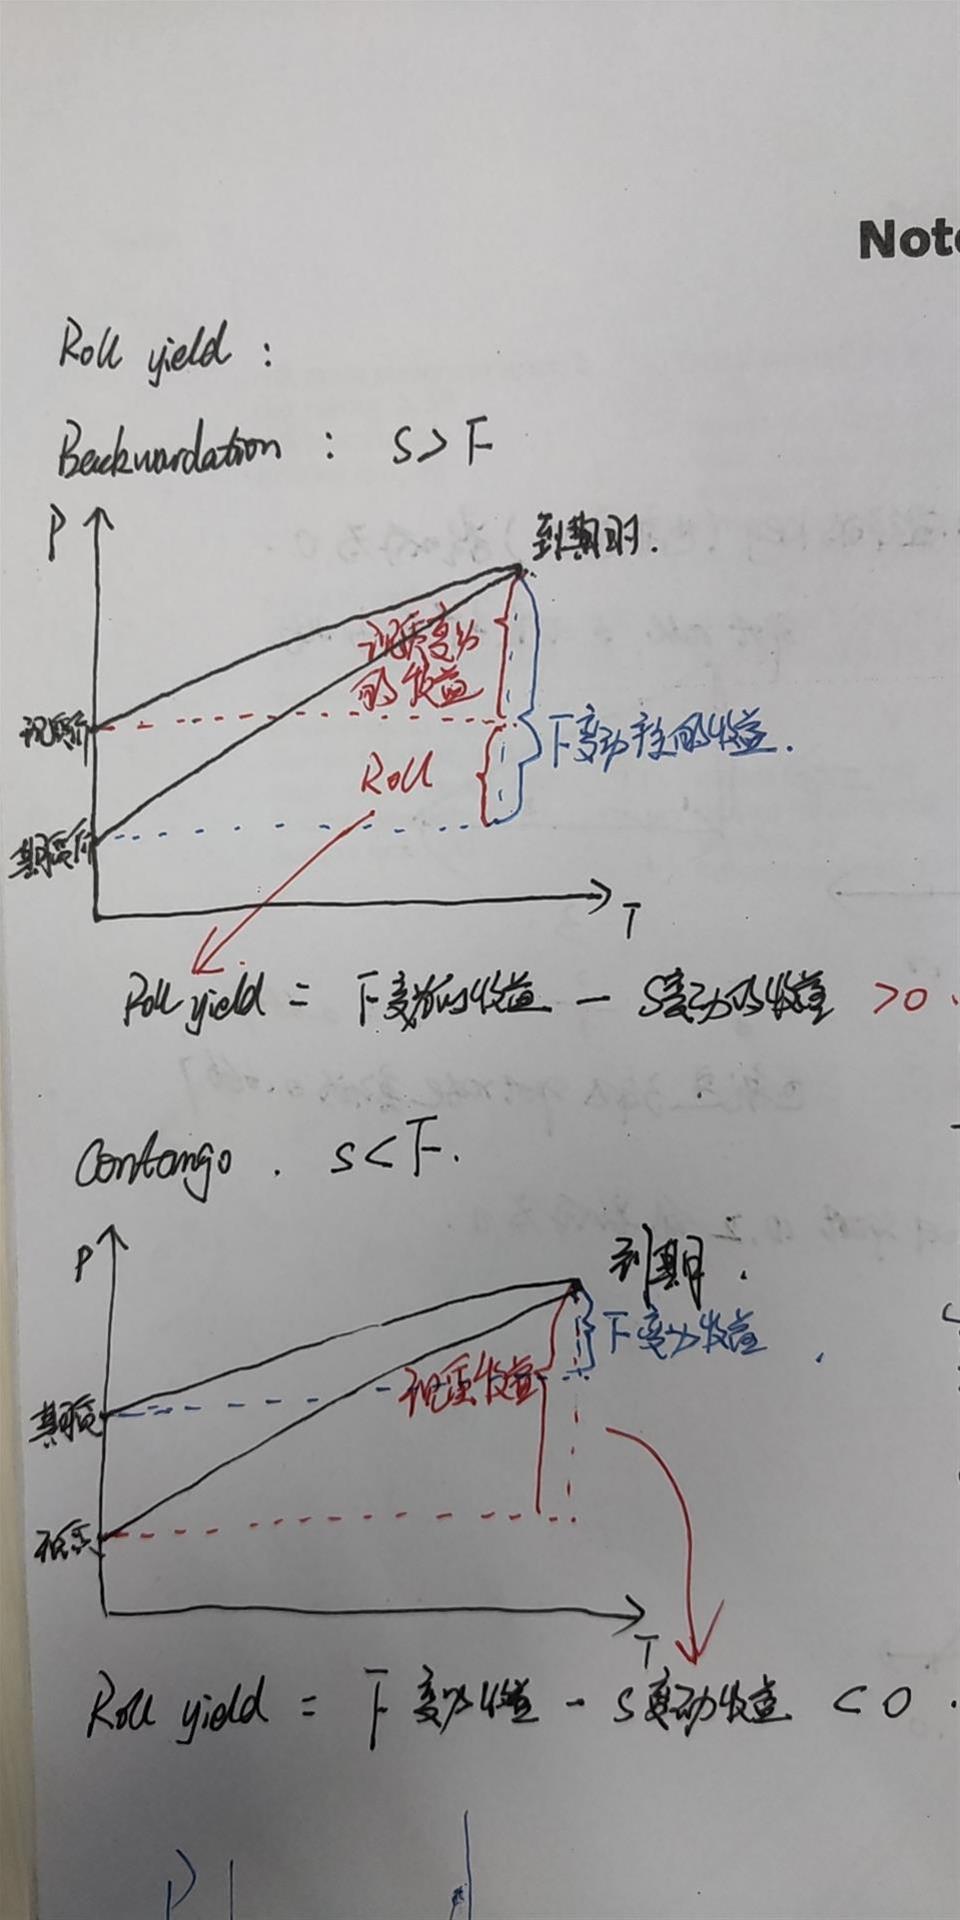 Note
Roll yield :
Backwardation : S > F
P
到期时.
现货变动
的收益
现货价
Roll
F变动产生的收益.
期货价
T
Roll yield = F变动的收益 - S变动的收益 >0.
Contango . S < F.
P
到期.
F变动收益
期货
现货收益
现货
T
Roll yield = F变动收益 - S变动收益 < 0.
P